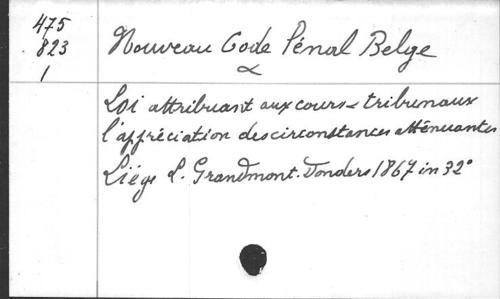 475
823
1
Nouveau Code Pénal Belge
&
Loi attribuant aux cours & tribunaux
l'appréciation des circonstances atténuantes
Liége L. Grandmont-Donders 1867 in 32°